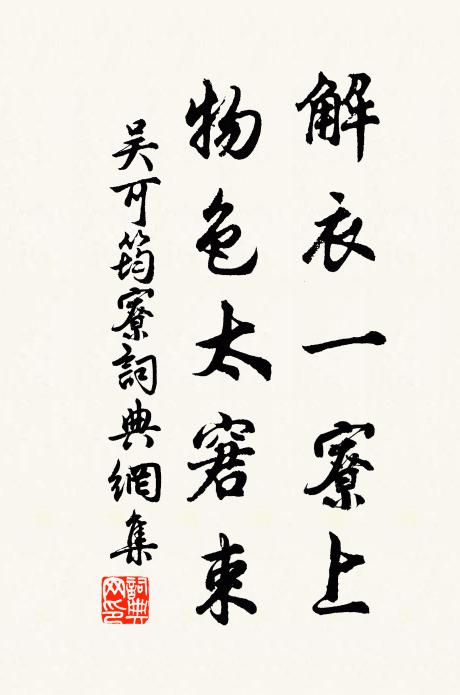 解衣一寮上
物色太窘束
吴可筠寮詞典網集
詞典网印